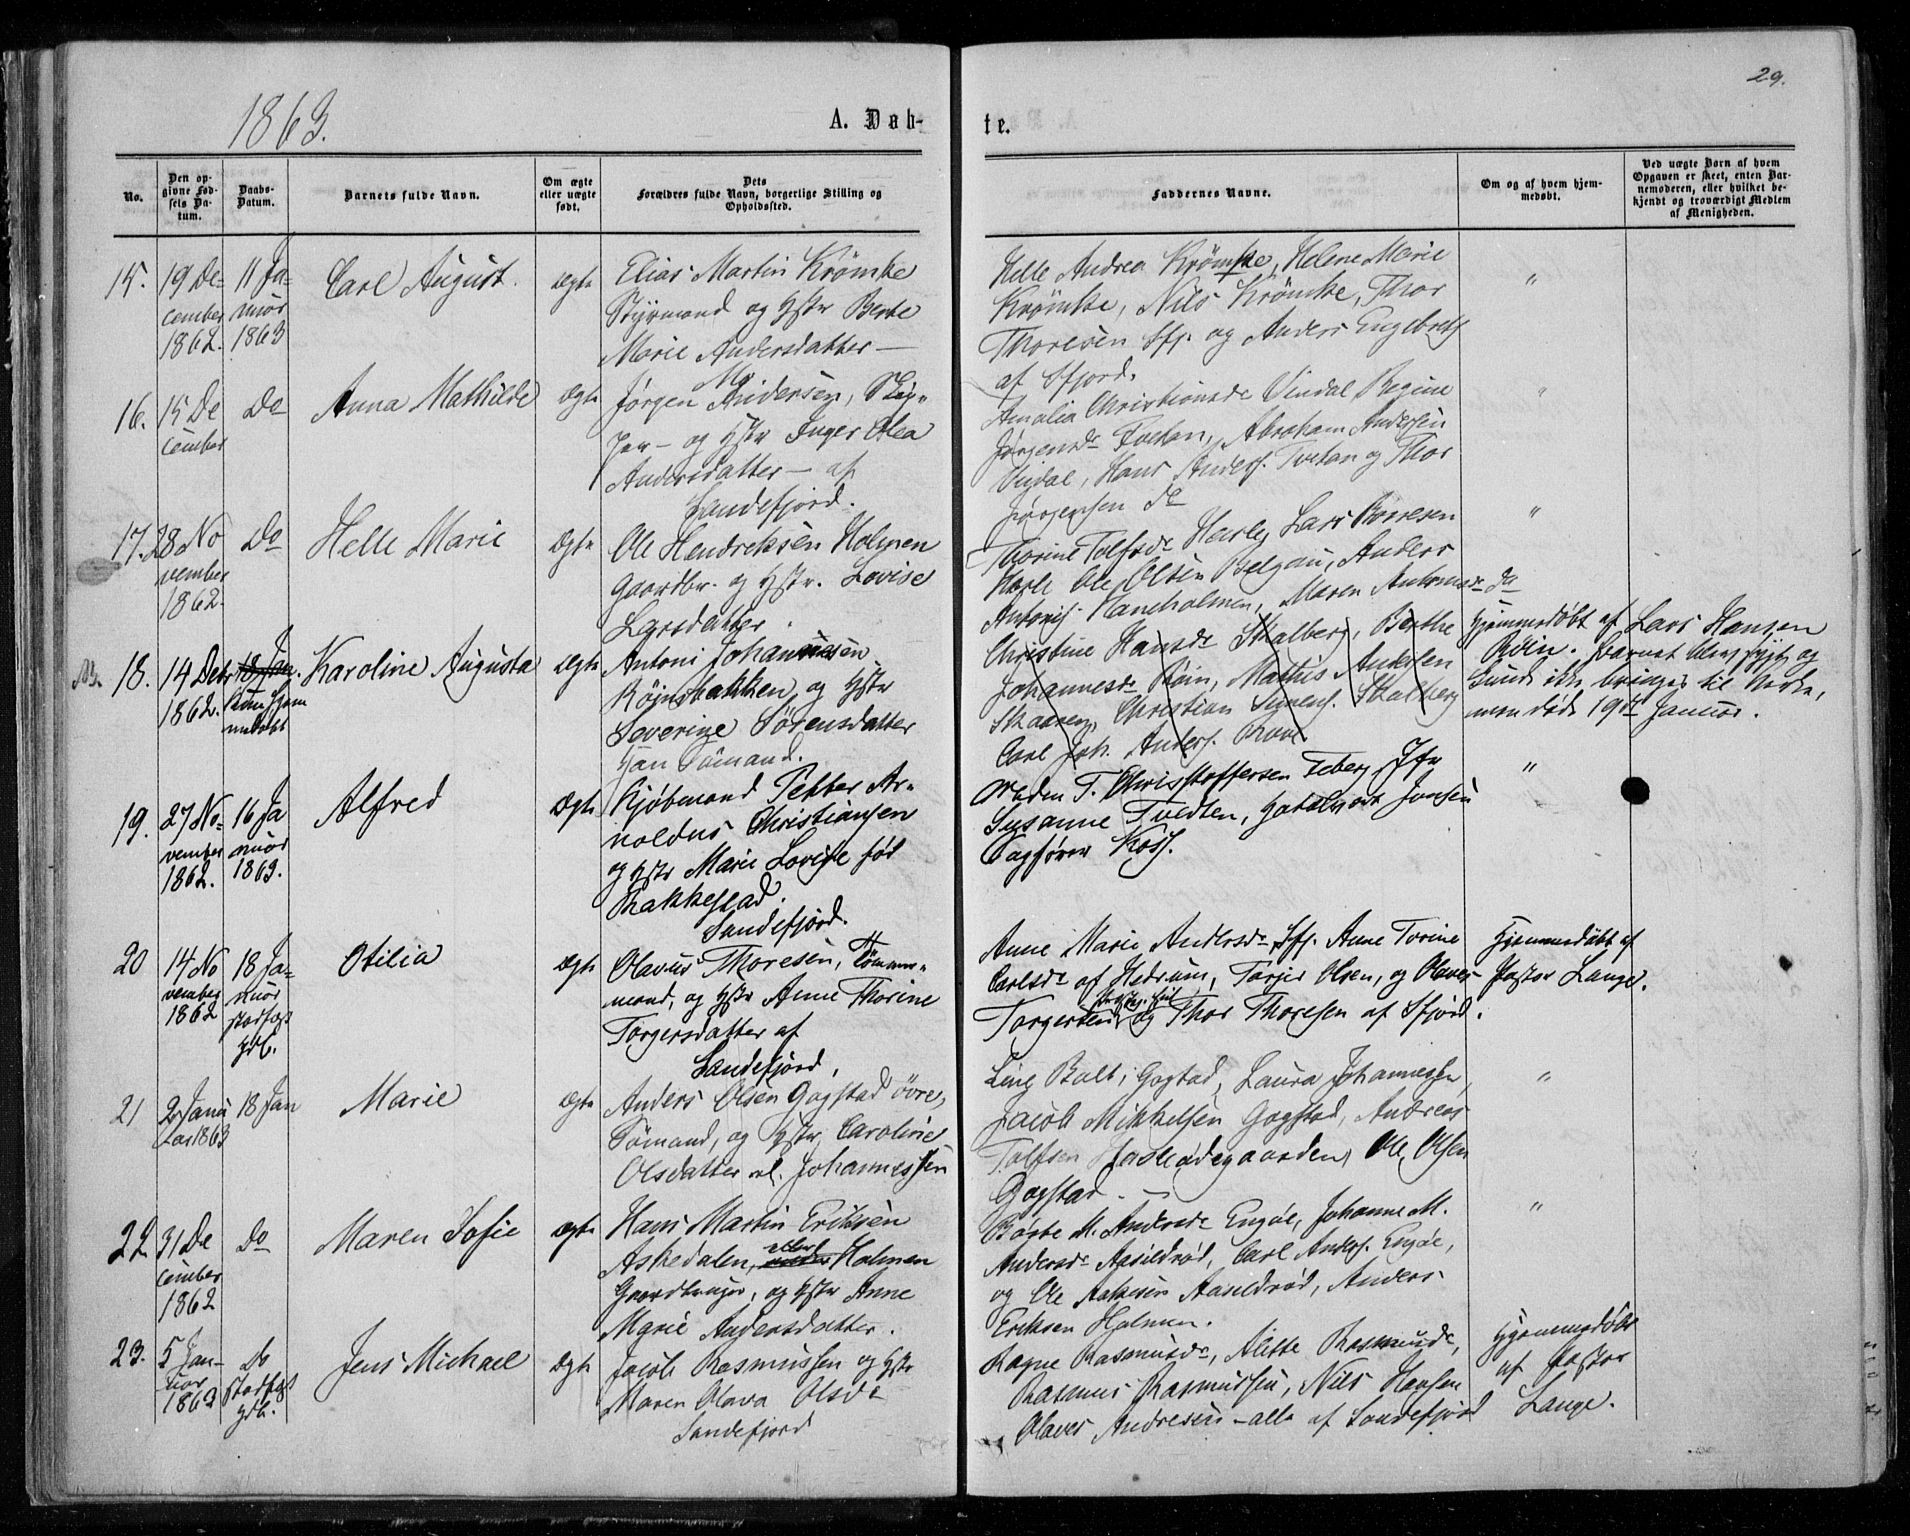 29.
1863.
A. Døb-
te.
No.
Den op-
givne Fød-
sels Da-
tum.
Daabs-
Datum.
Barnets fulde Navn.
Om ægte
eller uægte
født.
Dets
Forældres fulde Navn, borgerlige Stilling og
Opholdssted.
Faddernes Navne.
Om og af hvem hjem-
medøbt.
Ved uægte Børn af hvem
Opgaven er skeet, enten Bar-
nemoderen, eller hvilket be-
kjendt og troværdigt Medlem
af Menigheden.
15.
19 De-
cember
1862.
11 Ja-
nuar
1863
Carl August.
Ægte
Elias Martin Krømke
Styrmand og Hstr Berte
Marie Andersdatter —
Helle Andrea Krømke, Helene Marie
Krømke, Nils Krømke, Thor
Thoresen Sfj. og Anders Engebrets
af Sfjord.
"
16.
15 De
cember
Do
Anna Mathilde
Ægte
Jørgen My Andersen, Skip-
per — og Hstr Inger Olea
Andersdatter — af
Sandefjord.
Amalia Christiansdr Vindal Regine
Jørgensdr Tvetan, Abraham Andersen
Vindal, Hans Anders. Tvetan og Thor
Jørgensen do
"
17.
28 No
vember
1862.
Do
Helle Marie
Ægte
Ole Hendreksen Holmen
Gaardbr. og Hstr. Lovise
Larsdatter.
Thorine Tolfsdr Hasle, Lars
Hasle Ole Olsen Belgau, Anders
Antonis. Haneholmen, Maren Antonisdr do
"
NB.
18.
14 Debr
1862.
18 Jan.
Karoline Augusta
Ægte
Antoni Johannesen
Røinsbakken, og Hstr
Severine Sørensdatter
Han Sømand.
Christine Hansdr Skalberg, Berthe
Johannesdr Røin, Mathis Andersen
Skaaren, Christian Simens. Skalberg
Carl Joh. Anders.
Hjemmedøbt af Lars Hansen
Røin. Barnet blev sygt og
kunde ikke bringes til Kirke,
men døde 19de Januar.
19.
27 No-
vember
1862.
16 Ja
nuar
1863.
Alfred
Ægte
Kjøbmand Petter Ar-
noldus Christiansen
og Hstr Marie Lovise fød
Rakkestad.
Sandefjord.
Maden T. Christoffersen Jfr
Susanne Tvedten, Jonsen
Sagfører
"
20
14 No
vember
1862
18 Ja-
nuar
stadfæst
Hdb.
Otilia
Ægte
Olavus Thoresen, Tømmer-
mand, og Hstr Anne Thorine
Torgersdatter af
Sandefjord.
Anne Marie Andersdr Sfj. Anne Torine
Carlsdr af Hedrum, Torjer Olsen, og Olaves
Torgersen og Thor Thoresen af Sfjord.
Hjemmedøbt af
Pastor Lange.
21
2 Janu
ar 1863
18 Jan
Marie
Ægte
Anders Olsen Gogstad øvre,
Sømand, og Hstr Caroline
Olsdatter el. Johannessen
Line Bolt, Gogstad, Laura Johannessen,
Jacob Mikkelsen Gogstad, Andreas
Tolfsen Hasleødegaarden, Ole Olsen
Gogstad.
"
22
31 De
cember
1862
Do
Maren Sofie
Ægte
Hans Martin Eriksen
Askedalen, eller Holmen
Gaardbruger, og Hstr Anne
Marie Andersdatter.
Børte M. Andersdr Engøe, Johanne M.
Andersdr Aasildrød, Carl Anders. Engøe,
og Ole Aasildrød, Anders
Eriksen Holmen.
"
23.
5 Jan-
uar
1863
Do
stadfæst
Hdb.
Jens Michael
Ægte
Jacob Rasmussen og Hstr
Maren Olava Olsdr
Sandefjord
Ragne Rasmusdr, Alette Rasmusdr,
Rasmus Rasmussen, Nils Hansen
Olaves Andresen — alle af Sandefjord
Hjemmedøbt
af Pastor
Lange.